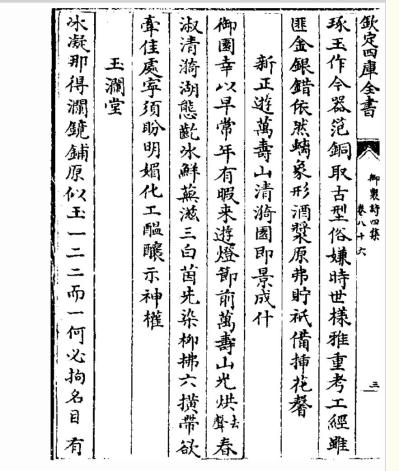 欽定四庫全書
御製詩四集
卷八十六
三
琢玉作令器笵銅取古型俗嫌時世樣雅重考工經雖
匪金銀錯依然螭象形酒漿原弗貯祇備揷花馨
新正遊萬壽山清漪園即景成什
御園幸以早常年有暇來遊燈節前萬壽山光烘去聲春
淑清漪湖態冰鮮蕪滋三白茵先染柳拂六橫帶欲
牽佳處寧須盼明媚化工醖釀示神權
玉瀾堂
冰凝那得瀾鏡鋪原似玉一二二而一何必拘名目有